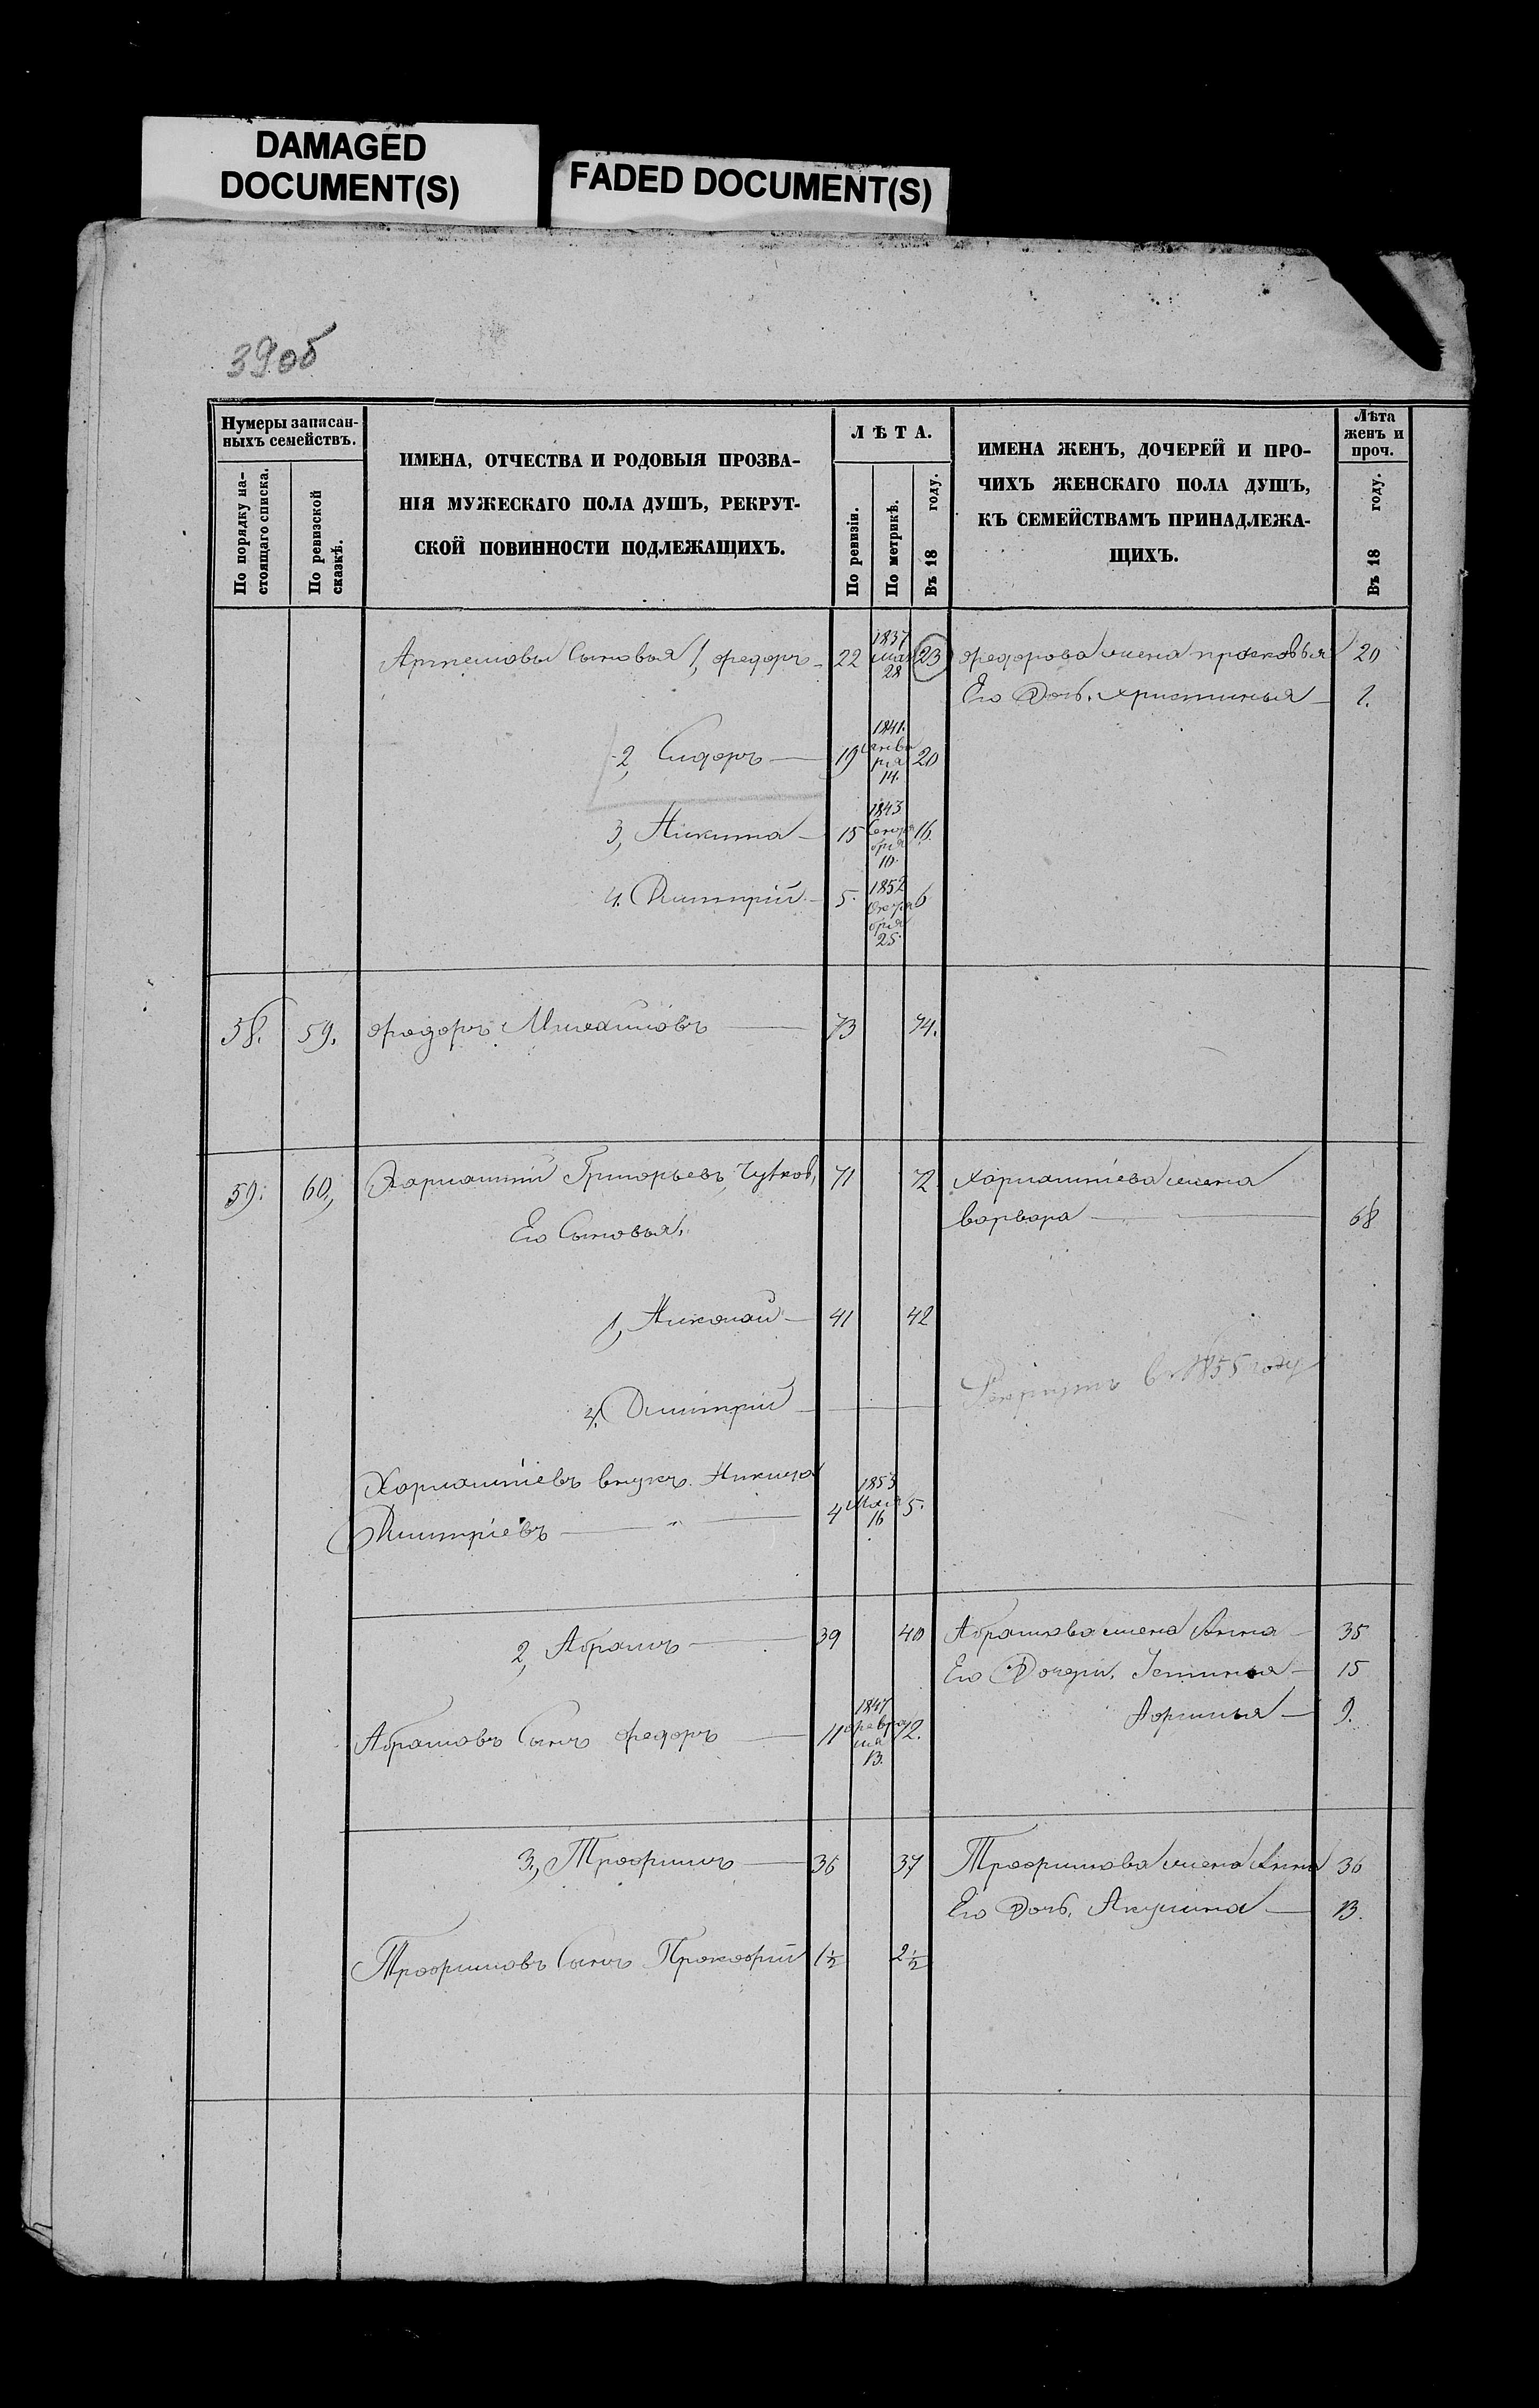 DAMAGED
DOCUMENT(S)
FADED DOCUMENT(S)
39об
Нумеры записан-
ныхъ семействъ.
По порядку на-
стоящаго списка.
По ревизской
сказкѣ.
ИМЕНА, ОТЧЕСТВА И РОДОВЫЯ ПРОЗВА-
НІЯ МУЖЕСКАГО ПОЛА ДУШЪ, РЕКРУТ-
СКОЙ ПОВИННОСТИ ПОДЛЕЖАЩИХЪ.
ЛѢТА.
По ревизіи.
По метрикѣ.
Въ 18 году.
ИМЕНА ЖЕНЪ, ДОЧЕРЕЙ И ПРО-
ЧИХЪ ЖЕНСКАГО ПОЛА ДУШЪ,
КЪ СЕМЕЙСТВАМЪ ПРИНАДЛЕЖА-
ЩИХЪ.
Лѣта
женъ и
проч.
Въ 18 году.
Артемовы Сыновья 1, федоръ 22 1837 Мая 28 23 федорова жена просковья 20
Его Дочь, христинья 1.
2, Сидоръ 19 1841. Янва ря 14. 20
3, Никита 15 1843 16.
4. Дмитрій 5. 1852 25. 6
58. 59. федоръ Михайловъ 73 74.
59. 60, Харлампій Григорьевъ 71 72 Харлампіева жена
варвара 68
Его Сыновья,
1, Николай 41 42
4. Дмитрій Рекрутъ в 1855 году
Харлампіевъ внукъ Никита
Дмитріевъ 4 1853 Мая 16 5.
2, Абрамъ 39 40 Абрамова жена Анна 35
Его Дочери, Устинья 15
9.
Абрамовъ Сынъ федоръ 11 1847 февра ля 13. 12.
3, Трофимъ 36 37 Трофимова жена Анна 36
Его Дочь, Акулина 13.
Трофимовъ Сынъ Прокофій 1½ 2½